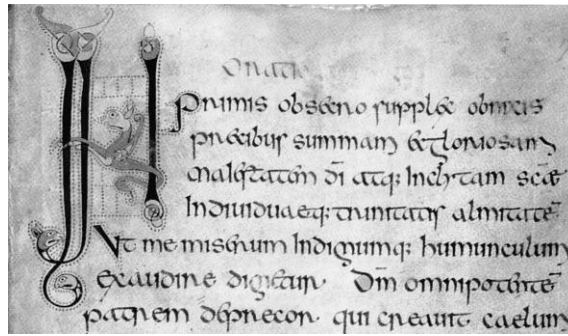 Oratio
IN primis obsecro supplex obnixis
precibus summam et gloriosam
maiestatem dī atq; Inclitam scāe
Indiuiduaeq; trinitatis almitatē
Ut me miserum Indignumq; humunculum
exaudire dignetur Dn̄m omnipotentē
patrem deprecor qui creauit caelum